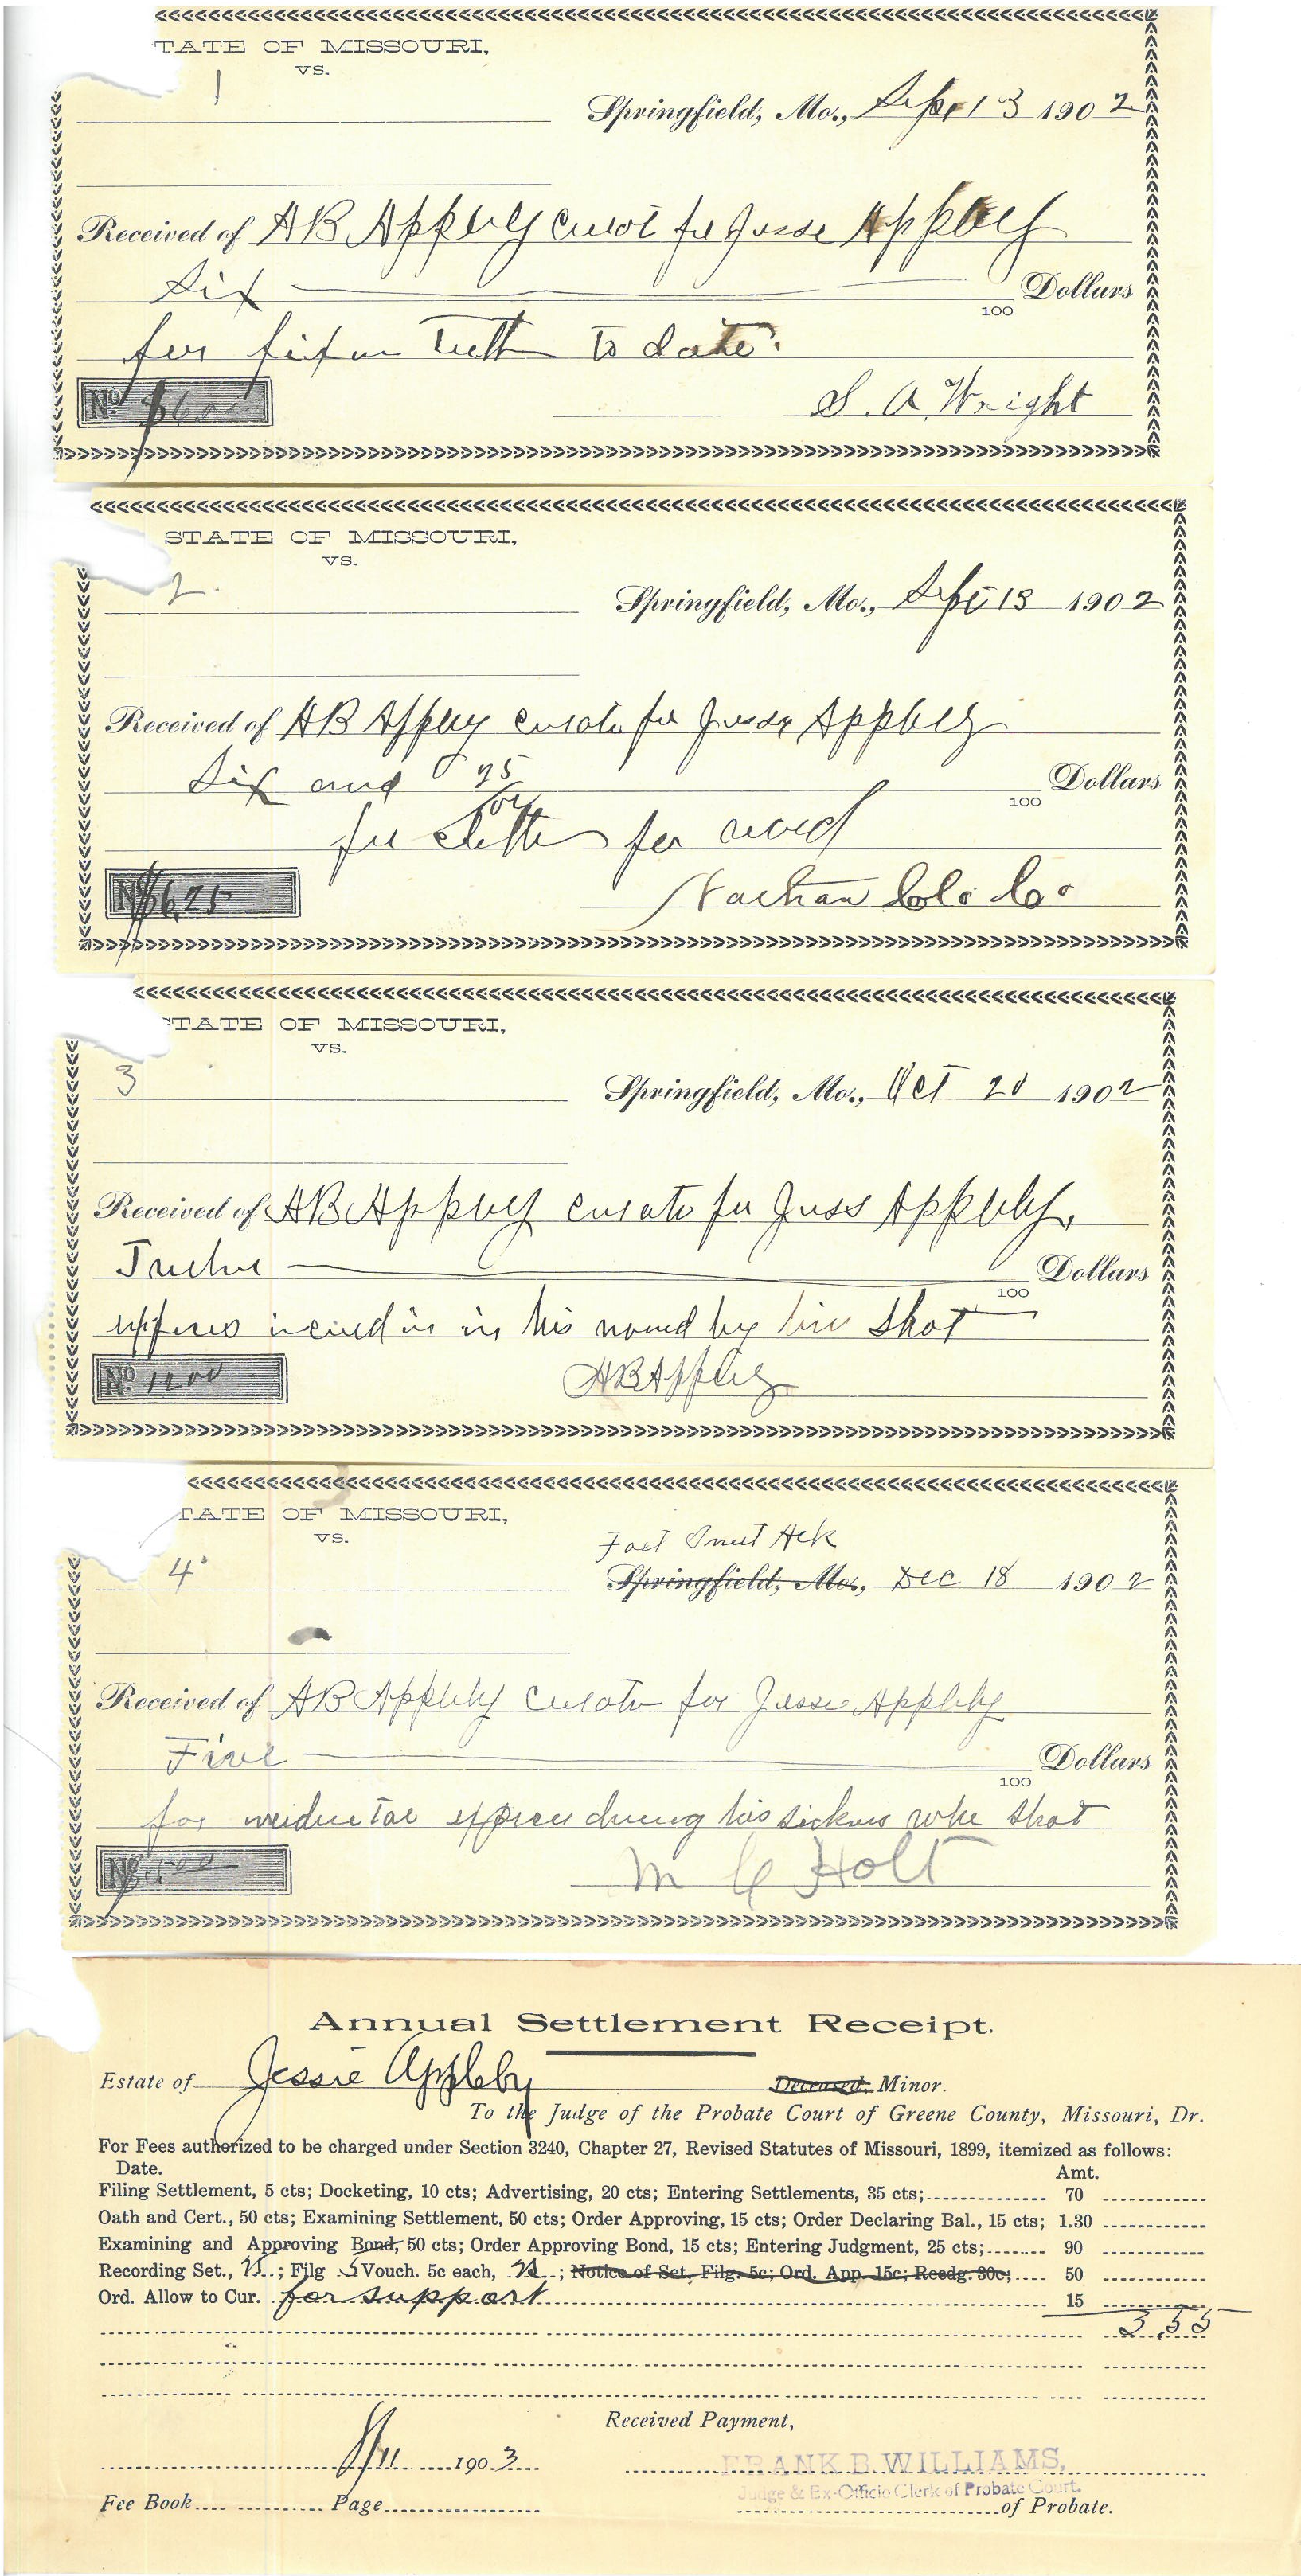 TATE OF MISSOURI,
VS.
1
Springfield, Mo., Sept 13 1902
Received of AB Appleby curat for Jesse Appleby
Six Dollars
100
for fixin Teeth to date.
No $6.00
S. A Wright
STATE OF MISSOURI,
VS.
2.
Springfield, Mo., Sept 13 1902
Received of AB Appleby curator for Jesse Appleby
Six and 25 Dollars
100
for clothes for
No $6.25
Nathan Clo Co
STATE OF MISSOURI,
VS.
3
Springfield, Mo., Oct 20 1902
Received of AB Appleby curator for Jess Appleby.
Twelve Dollars
100
in his wound by shot
No 12.00
AB Appleby
TATE OF MISSOURI,
VS.
4
Springfield, Mo., Dec 18 1902
Received of AB Appleby curator for Jesse Appleby
Five Dollars
100
for expenses during his sickness when shot
No $5.00
M C Holt
Annual Settlement Receipt.
Estate of Jessie Appleby Deceased, Minor.
To the Judge of the Probate Court of Greene County, Missouri, Dr.
For Fees authorized to be charged under Section 3240, Chapter 27, Revised Statutes of Missouri, 1899, itemized as follows:
Date. Amt.
Filing Settlement, 5 cts; Docketing, 10 cts; Advertising, 20 cts; Entering Settlements, 35 cts; 70
Oath and Cert., 50 cts; Examining Settlement, 50 cts; Order Approving, 15 cts; Order Declaring Bal., 15 cts; 1.30
Examining and Approving Bond, 50 cts; Order Approving Bond, 15 cts; Entering Judgment, 25 cts; 90
Recording Set., 25; Filg 5 Vouch. 5c each, 25; Notice of Set. Filg. 5c; Ord. App. 15c; Recdg. 30c; 50
Ord. Allow to Cur. for support 15
3.55
Received Payment,
8/11 1903
FRANK B. WILLIAMS,
Judge & Ex-Officio Clerk of Probate Court.
Fee Book Page of Probate.